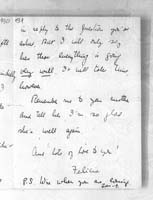 in reply to the question you've
asked. But I will only say
has that everything is going
very well. It will take time,
however.
Remember me to your mother
and tell her I'm so glad
she's well again
And lots of love to you!
Felicia
P.S. Wire when you are leaving